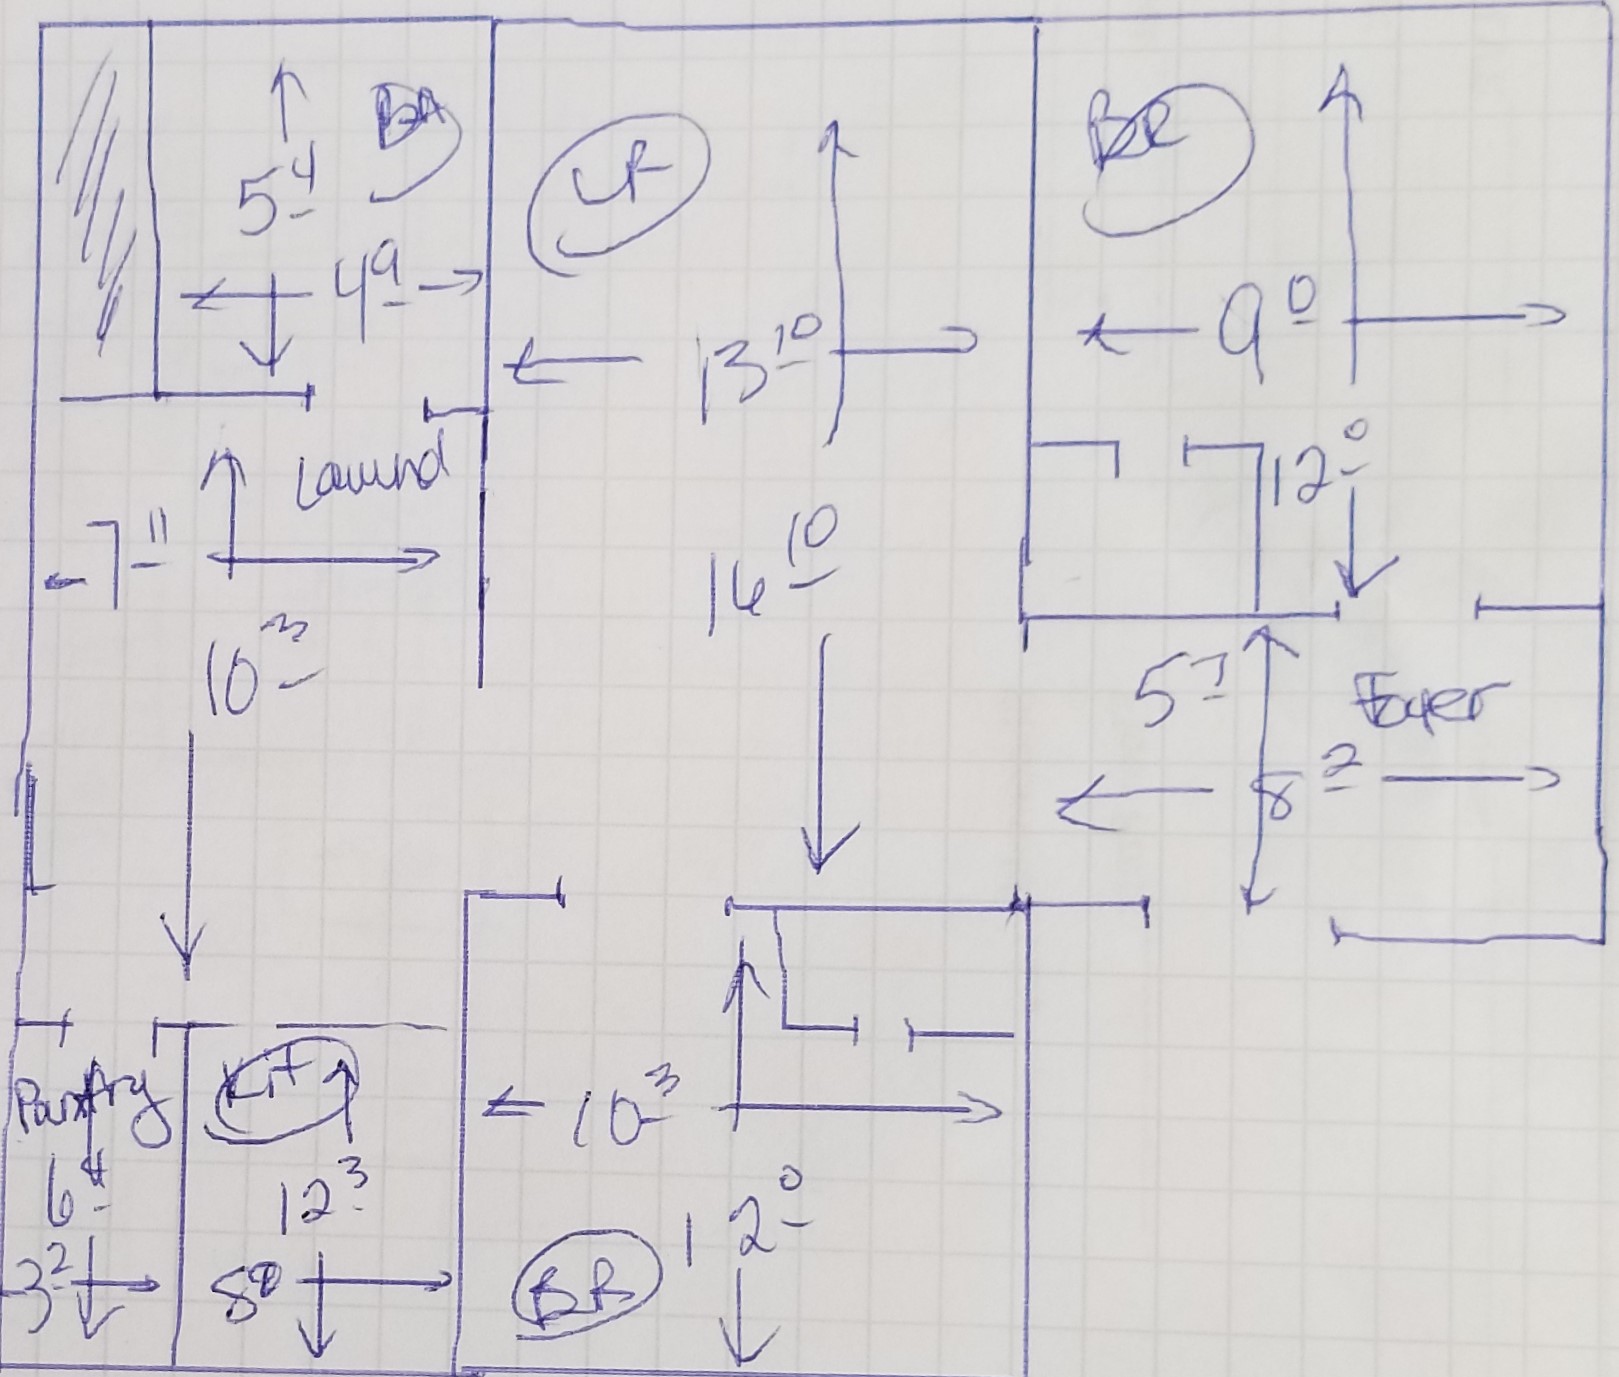 BA
5 4
4 9
LR
13 10
16 10
BR
9 0
12 0
Laund
7 11
10 3
5 7
Foyer
8 2
Pantry
6 4
3 2
Kit
12 3
10 3
12 0
BR